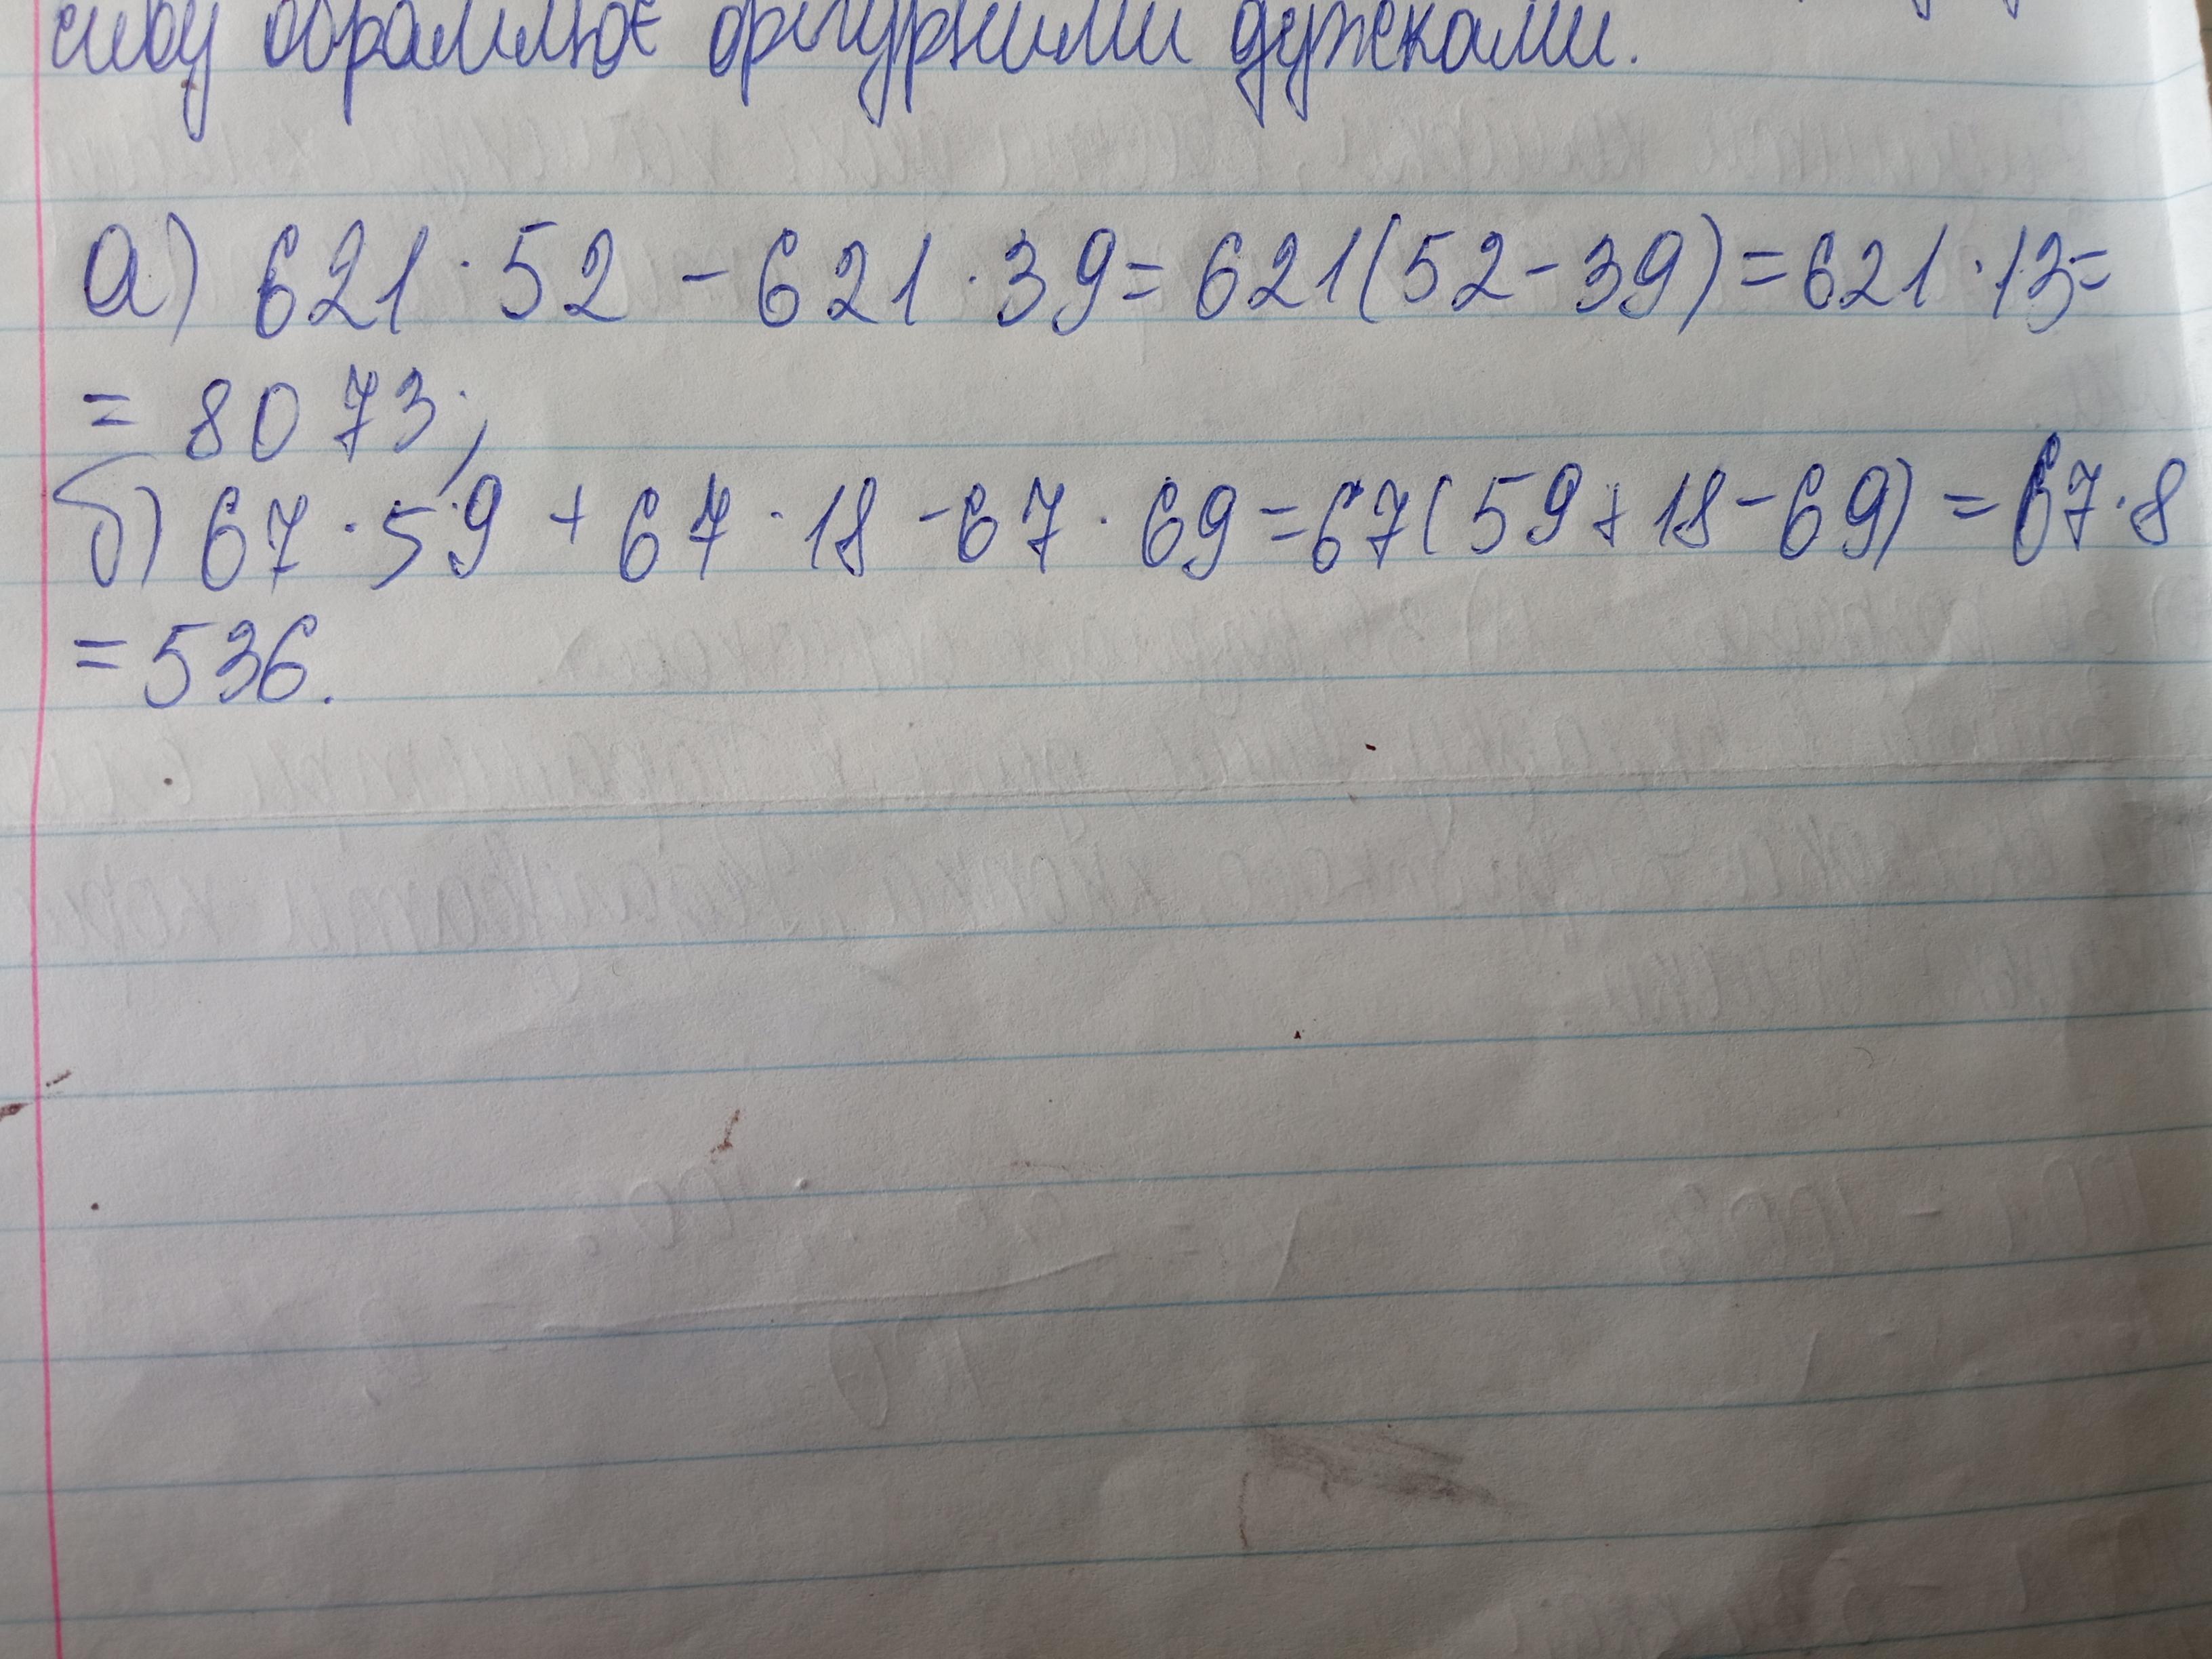 обрамлює фігурними дужками.
а) 621 · 52 - 621 · 39 = 621(52 - 39) = 621 · 13 =
= 8073;
б) 67 · 59 + 67 · 18 - 67 · 69 = 67(59 + 18 - 69) = 67 · 8
= 536.